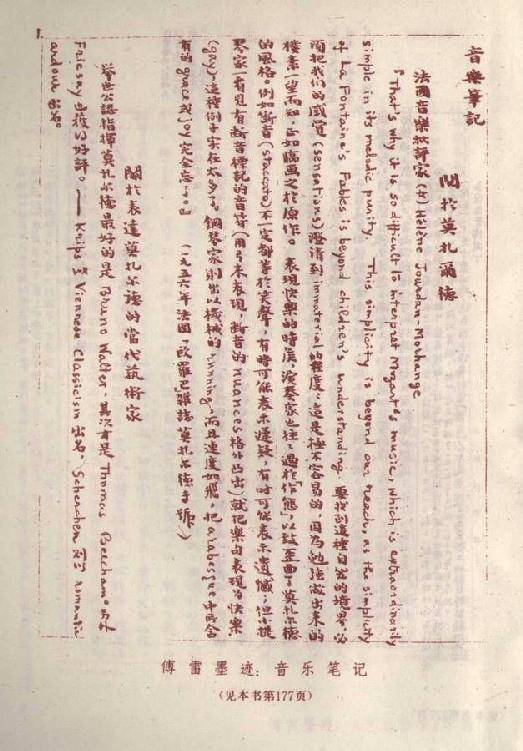 音樂筆記
關於莫扎爾德
法國音樂批評家(女)Hélène Jourdan-Morhange
"That's why it is so difficult to interpret Mozart's music, which is extraordinarily
simple in its melodic purity. This simplicity is beyond our reach, as the simplicity
of La Fontaine's Fables is beyond children's understanding. 要找到這種自发的境界，必
須把我們的感覺(sensations)澄清到immaterial的程度：這是極不容易的，因為勉強做出來的
樸素一望而知，正如臨画之於原作。表現快樂的時候，演奏家也往往過於"作態"，以致歪曲了莫扎尔德
的風格。例如断音(staccato)不一定都等於笑聲，有時可能表示遲疑，有時可能表示遺憾；但小提
琴家一看見有断音標記的音符(用弓來表現，断音的nuances格外凸出)就把樂句表現為快樂
(gay)，這種例子实在太多了。鋼琴家則出以機械的running，而且速度如飛，把arabesque中所含
有的grace或joy完全忘了。」(一九五六年法國"歐羅巴"雜誌莫扎尔德專號)
關於表達莫扎尔德的當代藝術家
舉世公認指揮莫扎尔德最好的是Bruno Walter，其次才是Thomas Beecham；
Fricsay也獲得好評。——Krips以Viennese Classicism出名，Scherchen則以romantic
ardour出名。
傅雷墨迹：音乐笔记
（见本书第177页）